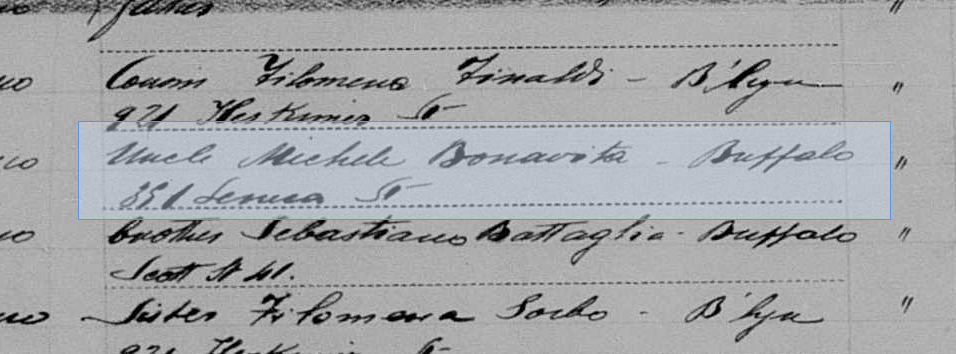 father
Cousin Filomena Finaldi - B'lyn "
921 Herkimer St
Uncle Michele Bonavita - Buffalo "
351 Seneca St
brother Sebastiano Battaglia - Buffalo "
Scott St 41.
Sister Filomena Sorbo - B'lyn "
921 Herkimer St